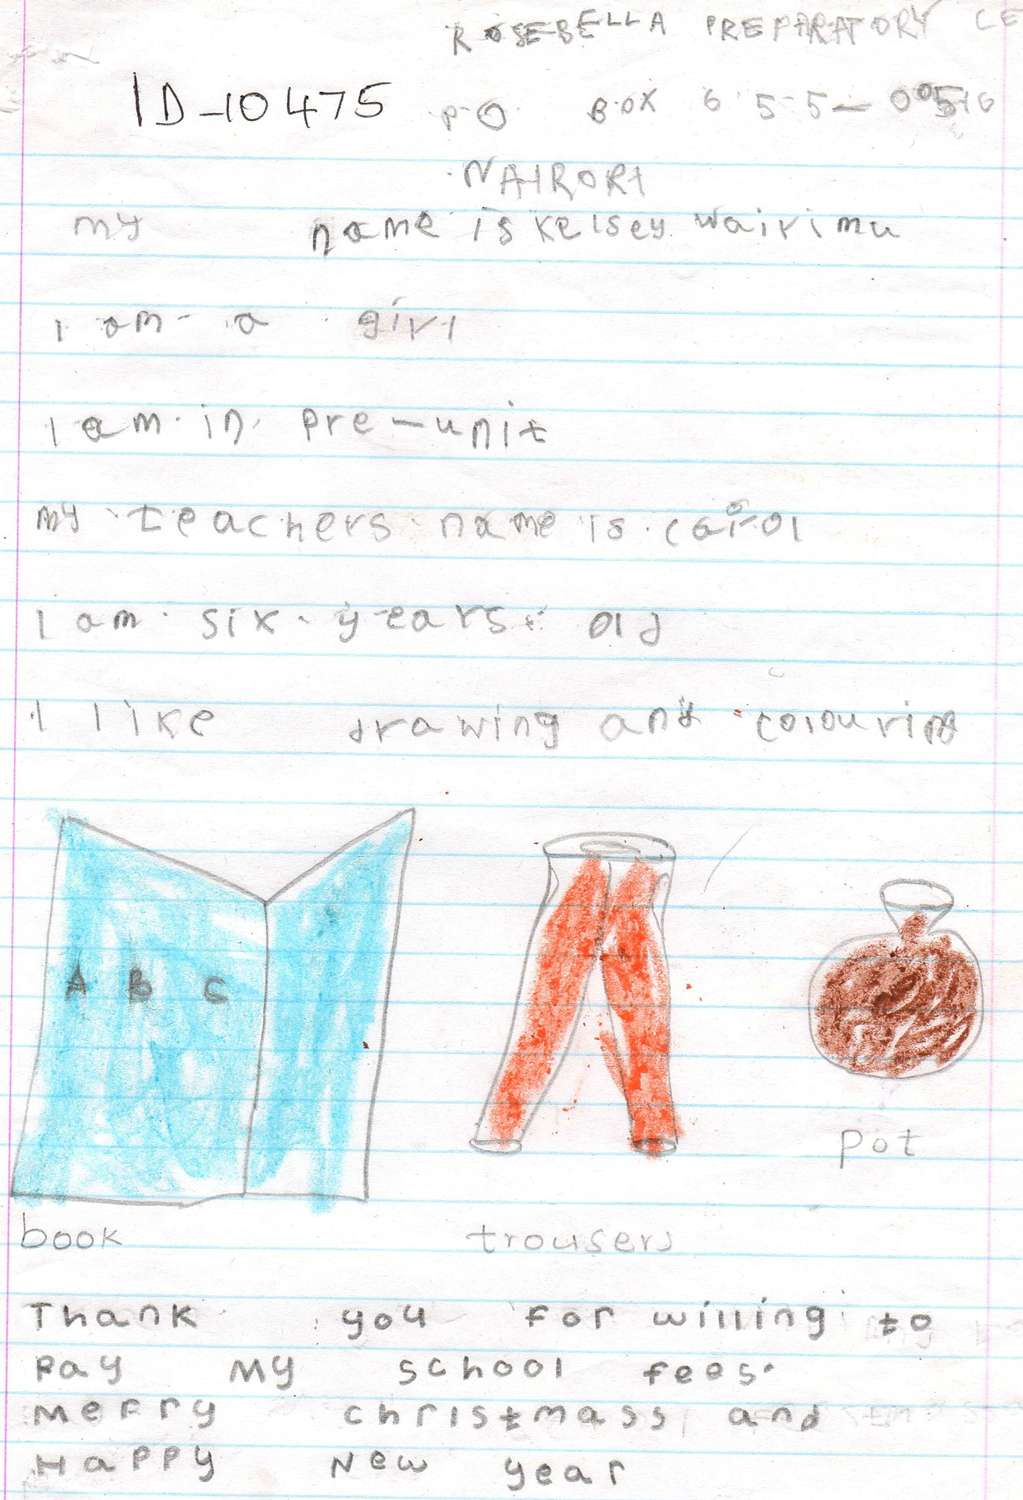 ROSEBELLA PREPARATORY CE
ID-10475
P.O. BOX 655-00516
NAIRORI
my name is Kelsey wairimu
I am a girl
I am in pre-unit
my teachers name is carol
I am six years old
I like drawing and colouring
A B C
pot
book
trousers
Thank you for willing to
Pay my school fees.
Merry christmass and
Happy New year